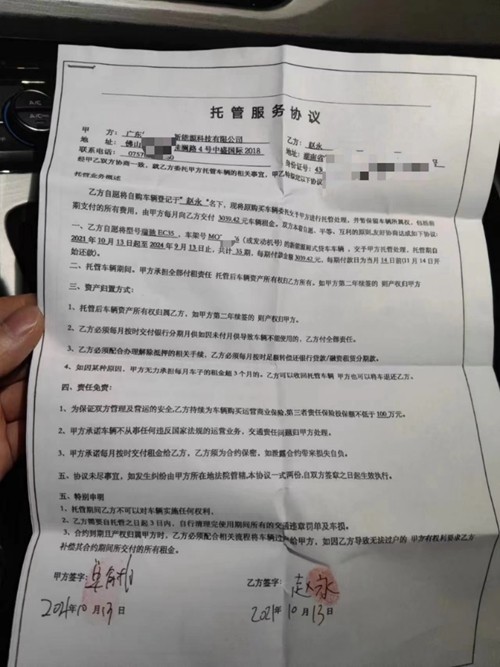 托管服务协议
甲 方：广东 新能源科技有限公司
乙方：赵永
地 址：佛山 路4号中盛国际2018
联系电话：0757
身份证号：43
经甲乙双方协商一致，就乙方委托甲方托管车辆的相关事宜，
托管业务概述
乙方自愿将自购车辆登记于"赵永"名下，现将原购买车辆委托
期支付的所有费用，由甲方每月向乙方交付 3039.42 元车辆租金。
一、乙方自愿将型号 EC35，车架号 MO （或发动机号）
2021 年 10 月 13 日起至 2024 年 9 月 13 日止，共计 期，每期付款金额 3039.42 元，每期付款日为当月 14 日前
始还款）。
二、托管车辆期间，甲方承担全部付租责任 托管后车辆资产所有权归乙方所有。如甲方第二年续签的 则产权归甲方
三、资产归置方式：
1、托管后车辆资产所有权归属乙方，如甲方第二年续签的 则产权归甲方。
2、乙方必须每月按时交付银行分期月供如因未付月供导致车辆不能使用的、乙方付全部责任。
3、乙方必须配合办理解除抵押的相关手续。乙方必须每月按时足额补偿还银行贷款/融资租赁分期款。
4、如因某种原因，甲方无力承担每月车子的租金超 3 个月的。乙方可以收回托管车辆 甲方也可以将车退还乙方。
四、责任免费：
1、为保证双方管理及营运的安全,乙方持续为车辆购买运营商业保险,第三者责任保险投保额不低于 100 万元。
2、甲方承诺车辆不从事任何违反国家法规的运营业务，交通责任问题归甲方处理。
3、甲方承诺每月按时交付租金给乙方，乙方须为合约保密，如泄露合约带来损失自负。
五、协议未尽事宜，如发生纠纷由甲方所在地法院管辖,本协议一式两份,自双方签章之日起生效执行。
五、特别申明
1、托管期间乙方不可以对车辆实施任何权利，
2、乙方需要自托管之日起 3 日内、自行清理完使用期间所有的交通违章罚单及车损。
3、合约到期且产权归属甲方时，乙方必须配合相关流程将车辆过户给甲方，如因乙方导致无法过户的 甲方有权利要求乙方
补偿其合约期间所交付的所有租金。
甲方签字：
乙方签字：赵永
2021年10月13日
2021年10月13日